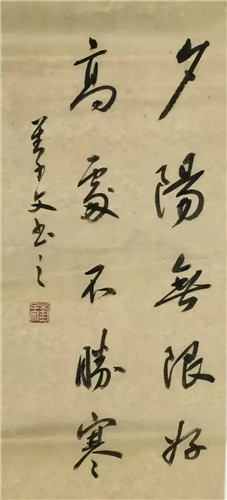 夕陽無限好
高處不勝寒
文書之